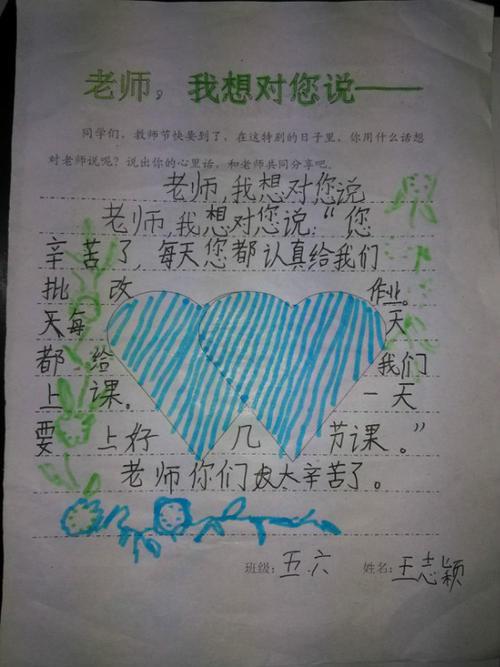 老师，我想对您说——
同学们，教师节快要到了，在这特别的日子里，你用什么话想
对老师说呢？说出你的心里话，和老师共同分享吧。
老师，我想对您说
老师，我想对您说：“您
辛苦了，每天您都认真给我们
批改作业。
天每天
都给我们
上课。一天
要上好几节课。”
老师你们太辛苦了。
班级：五.六 姓名：王志颖